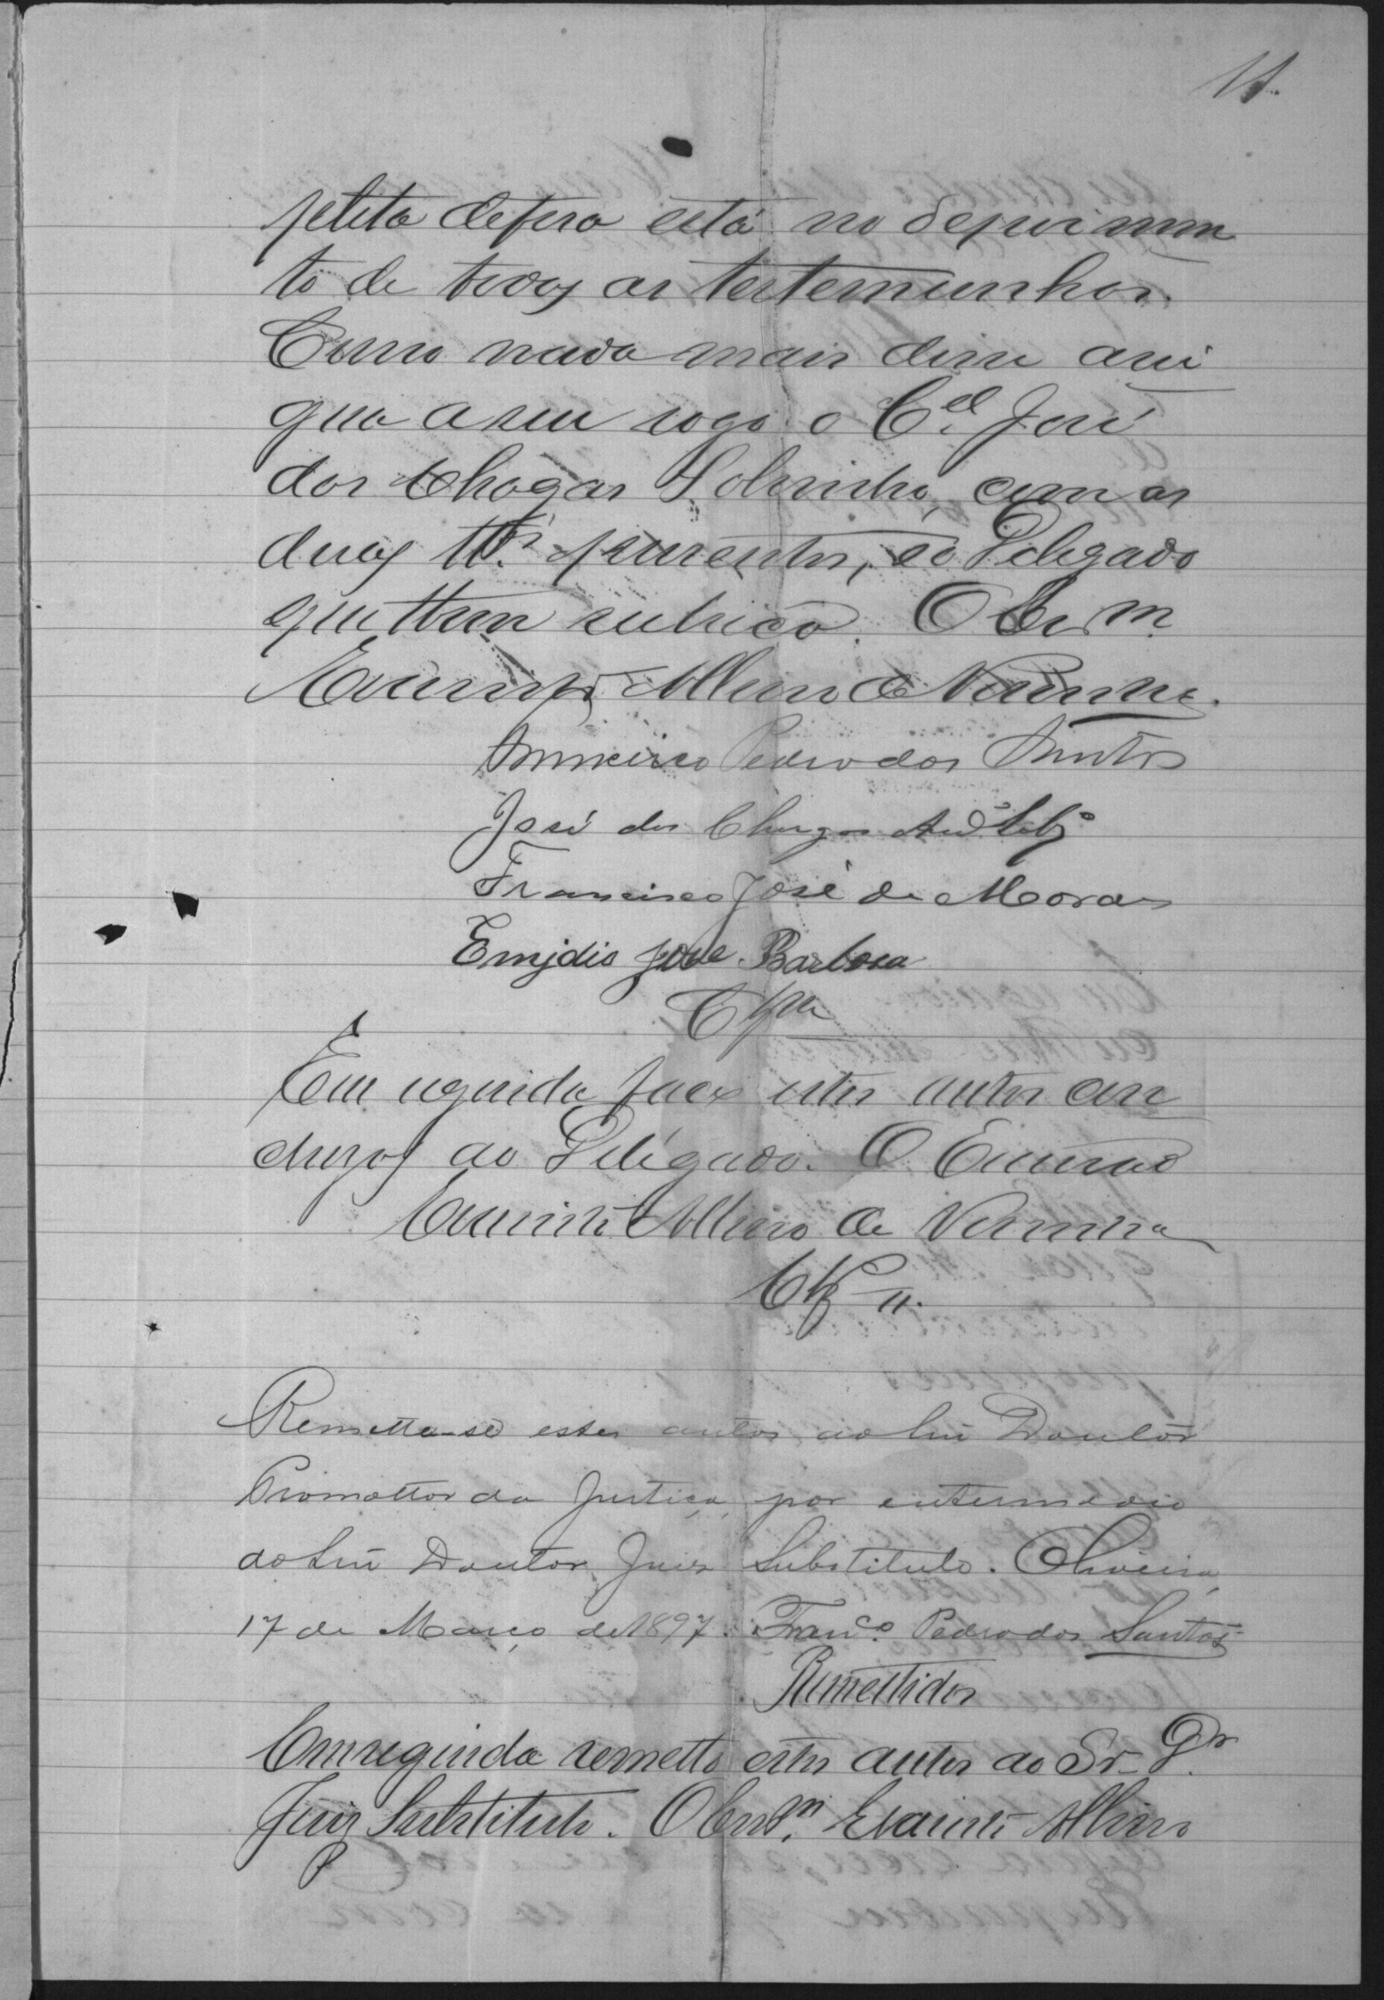 11
pleta defesa está no depoimen
to de todas as testemunhas.
Como nada mais disse assi
gna a seu rogo o C.el José
das Chagas Sobrinho, com as
duas tt.as presentes, eo Delegado
que tbem rubrica. O Escr.m
Albino de Vianna.
Francisco Pedro dos Santos
José das Chagas And.e Sob.o
Francisco José de Moraes
Emjdio José Barbosa
Em seguida faço estes autos con
cluzos ao Delegado. O Escrivão
Albino de Vianna
Clz.os
Remetta-se estes autos ao Snr Doutor
Promottor da Justiça, por entermedio
do Snr Doutor Juis Substituto. Oliveira,
17 de Março de 1897. Fran.co Pedro dos Santos
Remettidos
Em seguida remetto estes autos ao Sr. Dr.
Juiz Substituto. O Escr.m Albino